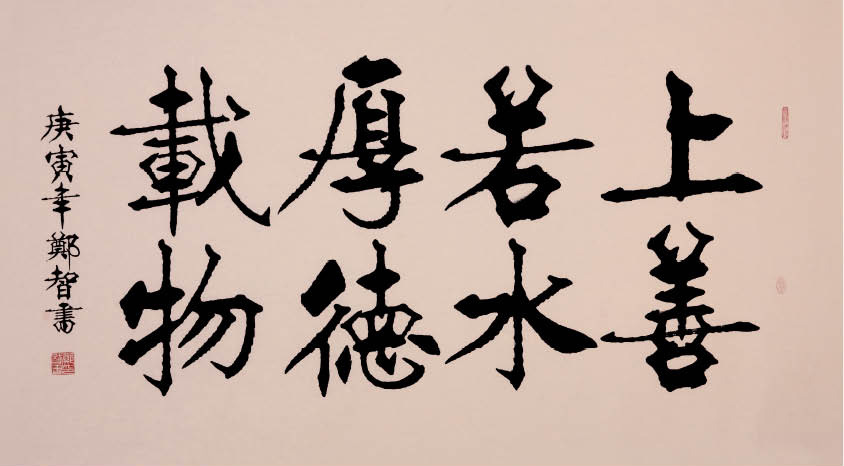 上善
若水
厚德
載物
庚寅年鄭智書